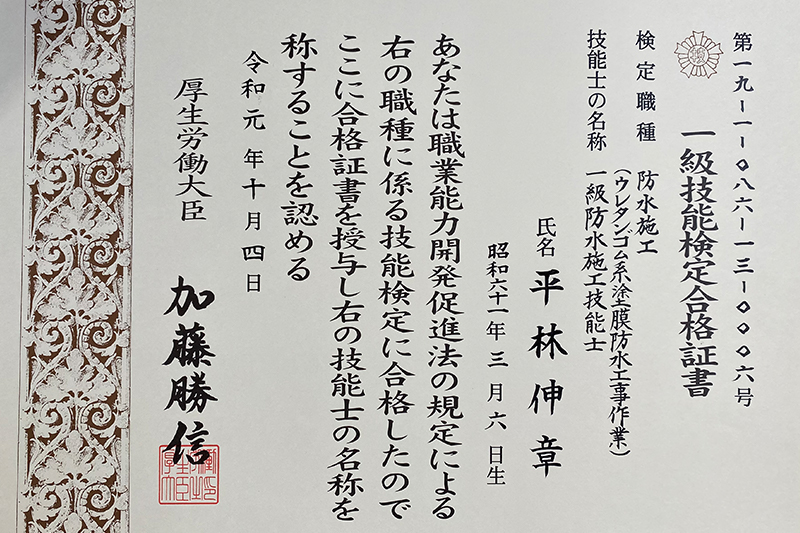 第一九-一-〇八六-一三-〇〇〇六号
一級技能検定合格証書
検定職種 防水施工
(ウレタンゴム系塗膜防水工事作業)
技能士の名称 一級防水施工技能士
氏名 平林伸章
昭和六十一年三月六日生
あなたは職業能力開発促進法の規定による
右の職種に係る技能検定に合格したので
ここに合格証書を授与し右の技能士の名称を
称することを認める
令和元年十月四日
厚生労働大臣 加藤勝信